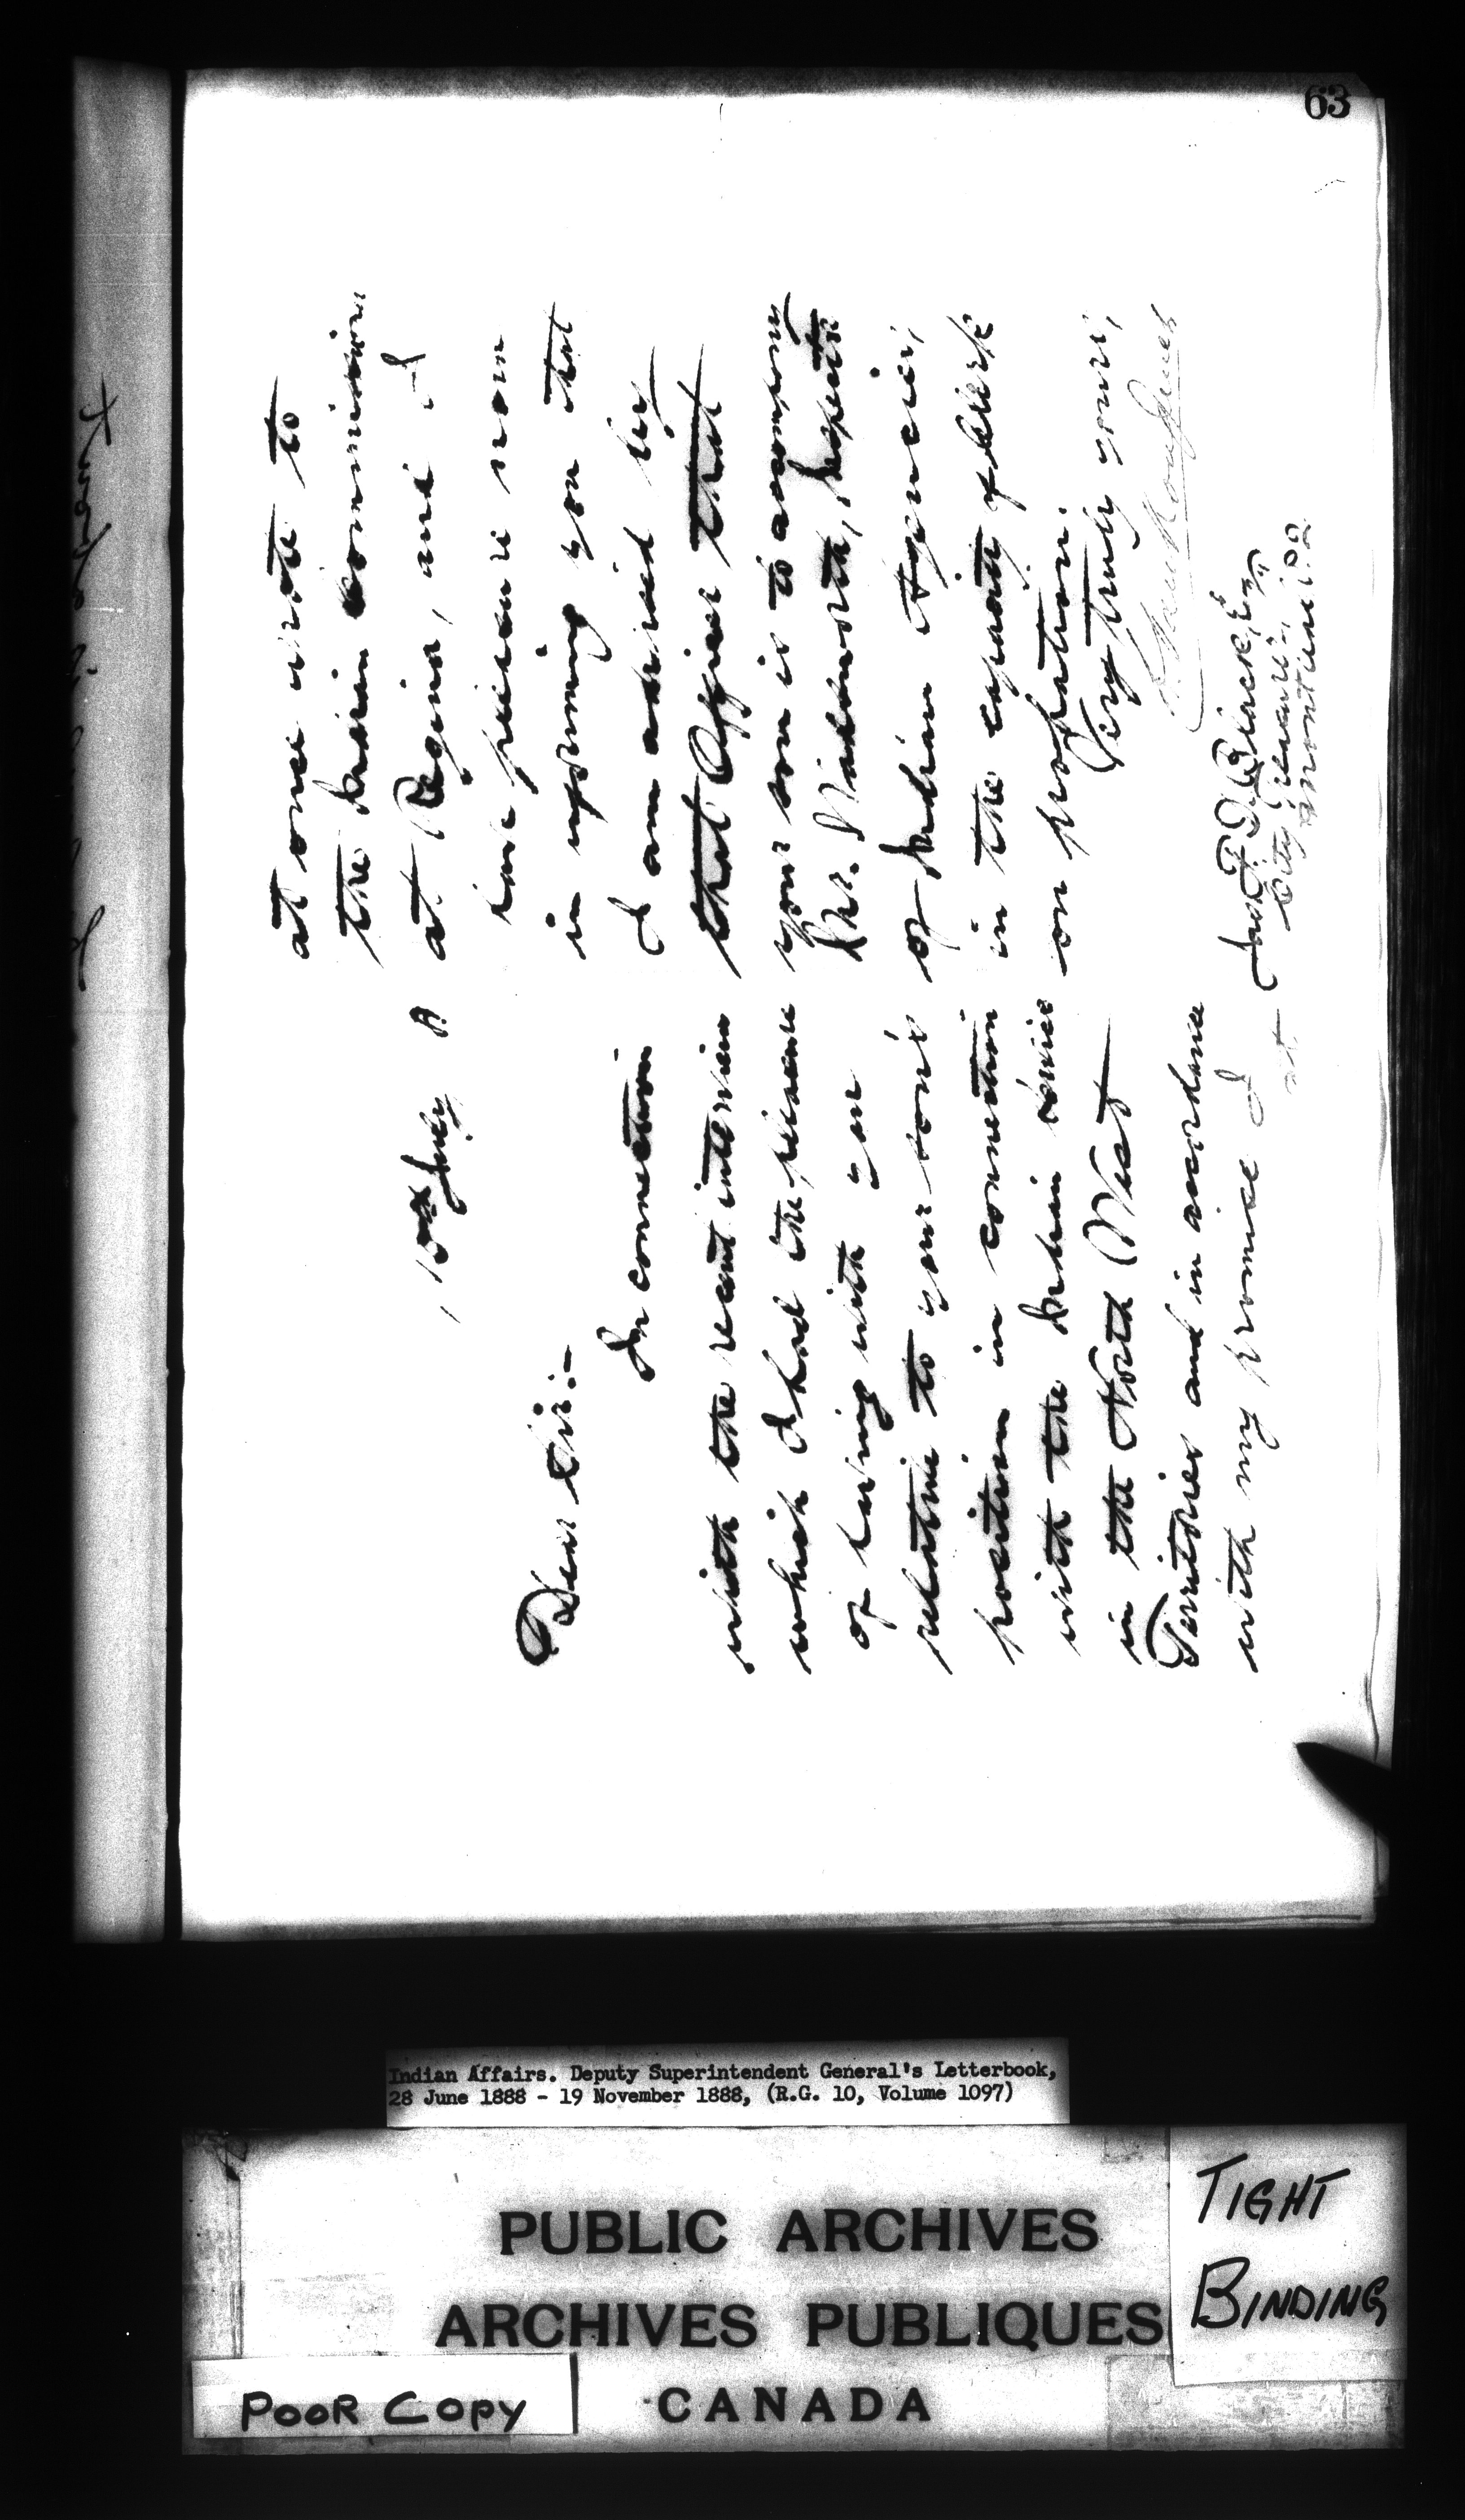 63
10th July 8
Dear Sir:-
In connection
with the recent interview
which I had the pleasure
of having with you
relative to your son's
position in connection
with the Indian service
in the North West
Territories and in accordance
with my promise I
at
at once wrote to
the Indian Commissioner
at Regina, and I
have pleasure now
in informing you that
I am advised by
that Officer that
your son is to accompany
Mr. Wadsworth, Inspector
of Indian Agencies,
in the capacity of Clerk
on probation.
Very truly yours,
Black, Esq,
City
Montreal P.Q.
Indian Affairs. Deputy Superintendent General's Letterbook,
28 June 1888 - 19 November 1888, (R.G. 10, Volume 1097)
PUBLIC ARCHIVES
ARCHIVES PUBLIQUES
CANADA
TIGHT
BINDING
POOR COPY